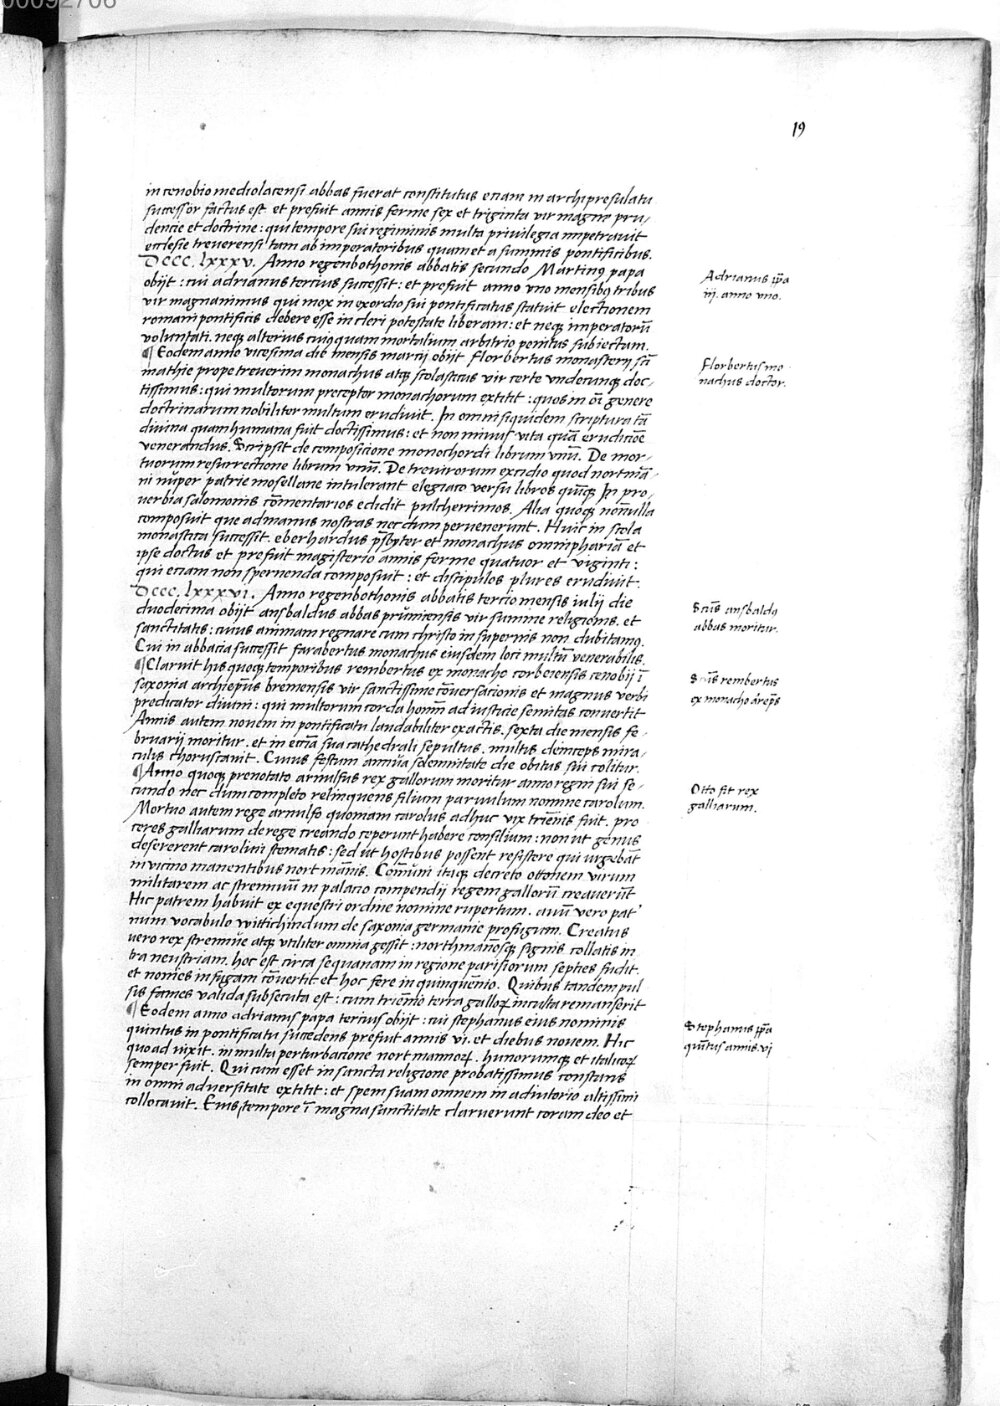 00092706
19
in cenobio mediolacensi abbas fuerat constitutus eciam in archipresulatu
successor factus est et prefuit annis ferme sex et triginta vir magne pru-
dencie et doctrine : qui tempore sui regiminis multa privilegia impetravit
ecclesie treverensi tam ab imperatoribus quam et a summis pontificibus.
Dccc. lxxxv. Anno regenbothonis abbatis secundo Martinꝯ papa
obijt : cui adrianus tercius successit : et prefuit anno vno mensibꝯ tribus
vir magnanimus qui mox in exordio sui pontificatus statuit electionem
romani pontificis debere esse in cleri potestate liberam : et neqꝫ imperatorū
voluntati. neqꝫ alterius cuiꝯquam mortalium arbitrio penitus subiectam.
¶ Eodem anno vicesima die mensis marcij obijt florbertus monasterij scī
mathie prope treverim monachus atqꝫ scolasticus vir certe vndecunqꝫ doc-
tissimus : qui multorum preceptor monachorum extitit : quos in oī genere
doctrinarum nobiliter multum erudivit. In omni siquidem scriptura tā
divina quam humana fuit doctissimus : et non minus vita quā erudicōe
venerandus. Scripsit de composicione monochordi librum vnū. De mor-
tuorum resurrectione librum vnū. De trevirorum excidio quod nortmā-
ni nuper patrie mosellane intulerant elegiaco versu libros quīqꝫ In pro-
verbia salomonis cōmentarios edidit pulcherrimos. Alia quoqꝫ nōnulla
composuit que ad manus nostras nec dum pervenerunt. Huic in scola
monastica successit. eberhardus p̄sbyter et monachus omnipharia et
ipse doctus et prefuit magisterio annis ferme quatuor et viginti :
qui eciam non spernenda composuit : et discipulos plures erudivit.
Dccc. lxxxvi. Anno regenbothonis abbatis tercio mensis iulij die
duodecima obijt ansbaldus abbas prumiensis vir summe religionis. et
sanctitatis : cuius animam regnare cum christo in supernis non dubitamꝯ.
Cui in abbacia successit farabertus monachus eiusdem loci multū venerabilis.
¶ Claruit hijs quoqꝫ temporibus rembertus ex monacho corbeiensis cenobij ī
saxonia archiep̄us bremensis vir sanctissime cōversacionis et magnus verbi
predicator divini : qui multorum corda hoīm ad iusticie semitas convertit
Annis autem novem in pontificatu laudabiliter exactis. sexta die mensis fe-
bruarij moritur. et in ecciā sua cathedrali sepultus. multis deinceps mira-
culis choruscavit. Cuius festum annua solemnitate die obitus sui colitur.
¶ Anno quoqꝫ prenotato arnulfus rex gallorum moritur anno regni sui se-
cundo nec dum completo relinquens filium parvulum nomine carolum.
Mortuo autem rege arnulfo quoniam carolus adhuc vix triēnis fuit. pro-
ceres galliarum de rege creando ceperunt habere consilium : non ut genus
desererent carolini stematis : sed ut hostibus possent resistere qui urgebāt
in vicino manentibus nortmānis. Comuni itaqꝫ decreto ottonem virum
militarem ac strennuū in palacio compendij regem gallorū creaverūt
Hic patrem habuit ex equestri ordine nomine rupertum. avū vero pat-
num vocabulo wittichindum de saxonia germanie profugum. Creatus
vero rex strennue atqꝫ utiliter omnia gessit : northmānosqꝫ signis collatis in-
tra neustriam. hoc est circa sequanam in regione parisiorum septies fudit.
et nonies in fugam cōvertit et hoc fere in quinquenio. Quibus tandem pul-
sis fames valida subsecuta est : cum triēnio terra galloꝝ inculta remanserit
¶ Eodem anno adrianus papa tercius obijt : cui stephanus eius nominis
quintus in pontificatu succedens prefuit annis vi. et diebus novem. Hic
quoad vixit. in multa perturbacione nortmannoꝝ. hunorumqꝫ et italicoꝝ
semper fuit. Qui cum esset in sancta religione probatissimus constans
in omni adversitate extitit : et spem suam omnem in adiutorio altissimi
collocavit. Eius tempore ī magna sanctitate claruerunt coram deo et
Adrianus p̄pa
iij. anno vno.
florbertus mo
nachus doctor.
Scūs ansbaldꝯ
abbas moritur.
rembertus
ex monacho arep̄s
Otto fit rex
galliarum.
Stephanus p̄pa
quītus annis. vi